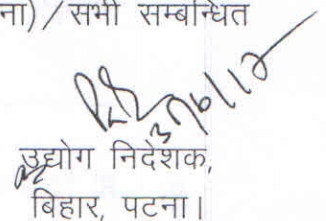 ना) / सभी सम्बन्धित
उद्योग निदेशक,
बिहार, पटना।